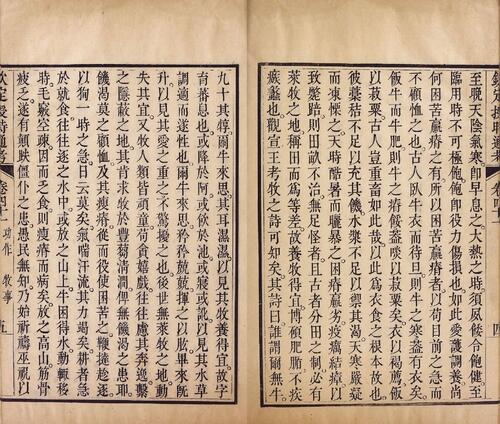 至晚天陰氣寒即早息之大熱之時須夙餧令飽健至
臨用時不可極飽飽即役力傷損也如此愛護調養尚
何困苦羸瘠之有所以困苦羸瘠者以苟目前之急而
不顧恤之也古人臥牛衣而待旦則牛之寒葢有衣矣
飯牛而牛肥則牛之瘠餒葢啖以菽粟矣衣以褐薦飯
以菽粟古人豈重畜如此哉以此為衣食之根本故也
彼藁秸不足以充其饑水漿不足以禦其渴天寒嚴凝
而凍慄之天時酷暑而曬暴之困瘠羸劣疫癘結瘴以
致斃踣則田畝不治無足怪者且古者分田之制必有
萊牧之地稱田而為等差故養牧得宜博碩肥腯不疾
瘯蠡也觀宣王考牧之詩可知矣其詩曰誰謂爾無牛
九十其犉爾牛來思其耳濕濕以見其牧養得宜故字
育蕃息也或降於阿或飲於池或寢或訛以見其水草
調適而遂性也爾牛來思矜矜兢兢揮之以肱畢來旣
升以見其愛之重之不驚擾之也後世無萊牧之地動
失其宜又牧人類皆頑童苟貪嬉戲往往慮其奔逸繫
之隱蔽之地其肯求牧於豐蒭清澗俾無饑渴之患耶
饑渴莫之顧恤及其瘦瘠從而役使困苦之鞭撻趁逐
以狥一時之急日云莫矣氣喘汗流其力竭矣耕者急
於就食往往逐之水中或放之山上牛困得水動輒移
時毛竅空疎因而乏食則瘦瘠而病矣放之高山筋骨
疲乏遂有顚跌僵仆之患愚民無知乃始祈禱巫祝以
欽定授時通考 卷四十一 功作 牧事 五